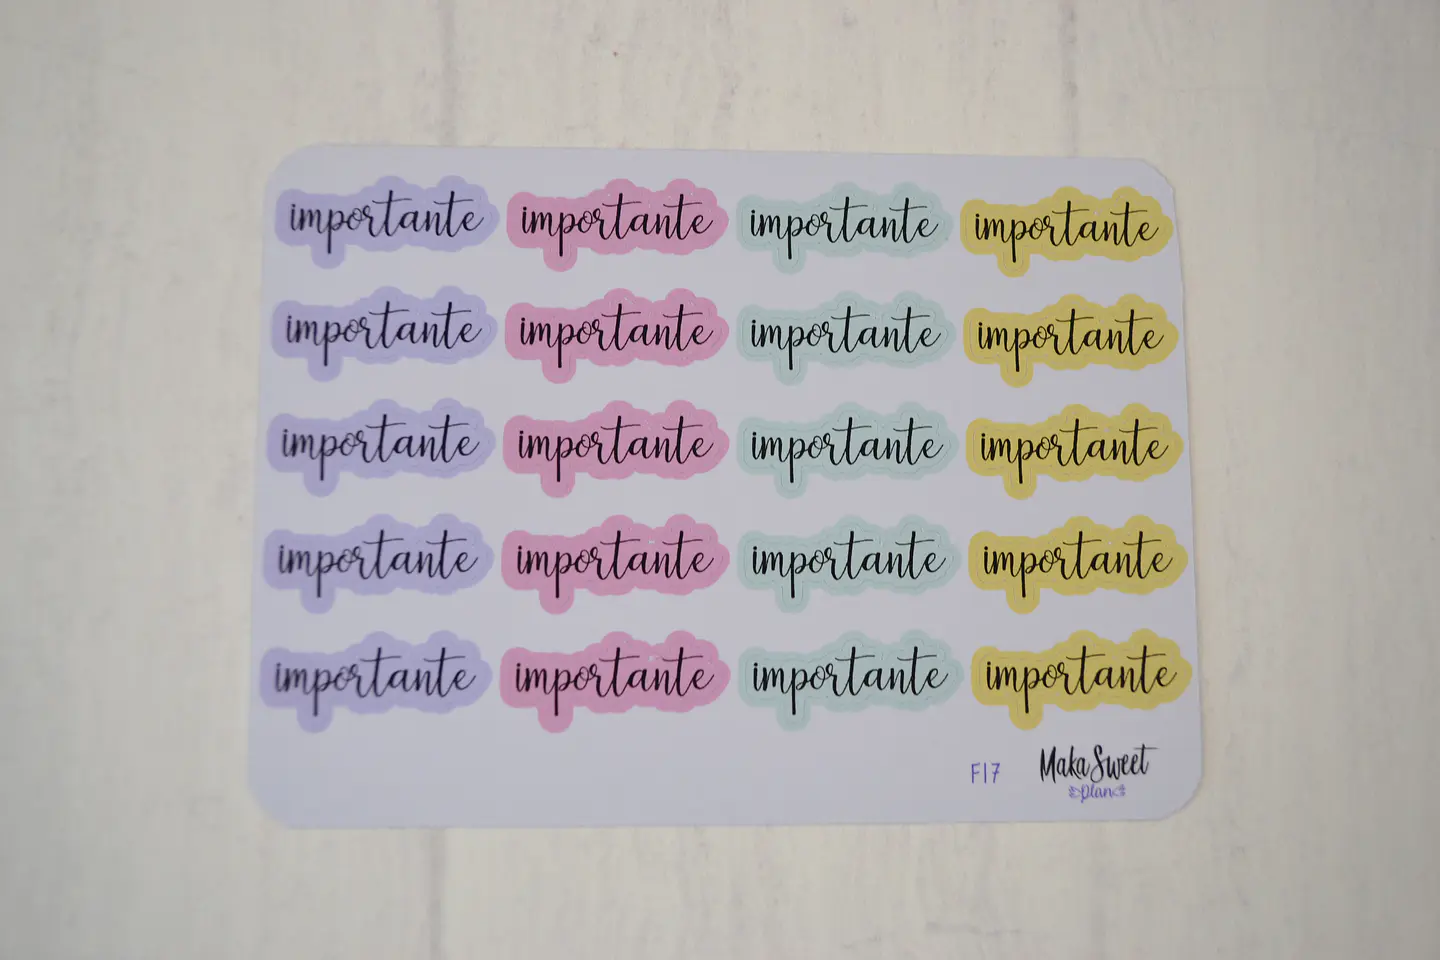 importante importante importante importante
importante importante importante importante
importante importante importante importante
importante importante importante importante
importante importante importante importante
F17 Maka Sweet
plan